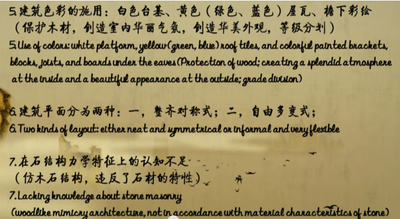 5.建筑色彩的施用：白色台基、黄色（绿色、蓝色）屋瓦、檐下彩绘
（保护木材，创造室内华丽气氛，创造华美外观，等级分划）
5.Use of colors: white platform, yellow(green, blue) roof tiles, and colorful painted brackets,
blocks, joists, and boards under the eaves(Protection of wood; creating a splendid atmosphere
at the inside and a beautiful appearance at the outside; grade division)
6.建筑平面分为两种：一，整齐对称式；二，自由多变式；
6.Two kinds of layout: either neat and symmetrical or informal and very flexible
7.在石结构力学特征上的认知不足
（仿木石结构，违反了石材的特性）
7.Lacking knowledge about stone masonry
(woodlike mimicry architecture, not in accordance with material characteristics of stone)